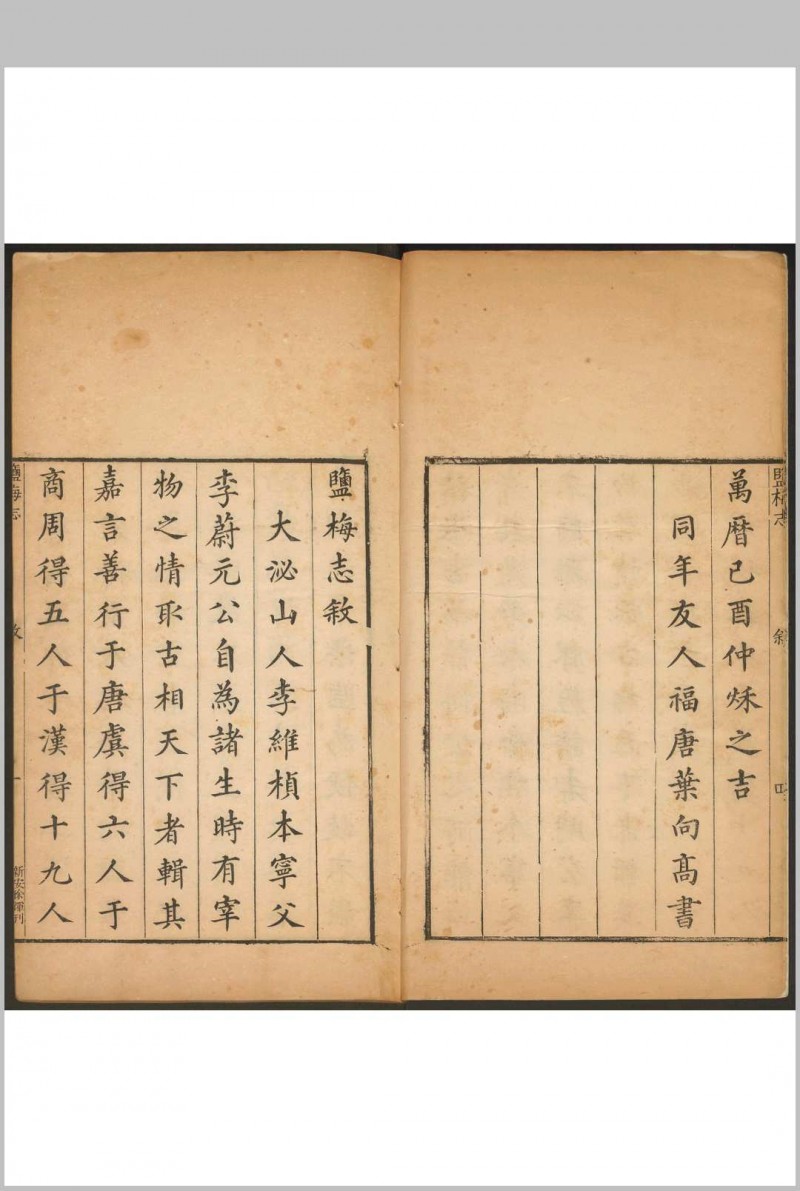 萬曆己酉仲秌之吉
同年友人福唐葉向髙書
鹽梅志
敘
四
鹽梅志敘
大泌山人李維楨本寧父
李蔚元公自為諸生時有宰
物之情取古相天下者輯其
嘉言善行于唐虞得六人于
商周得五人于漢得十九人
鹽梅志
敘
一
新安
刊